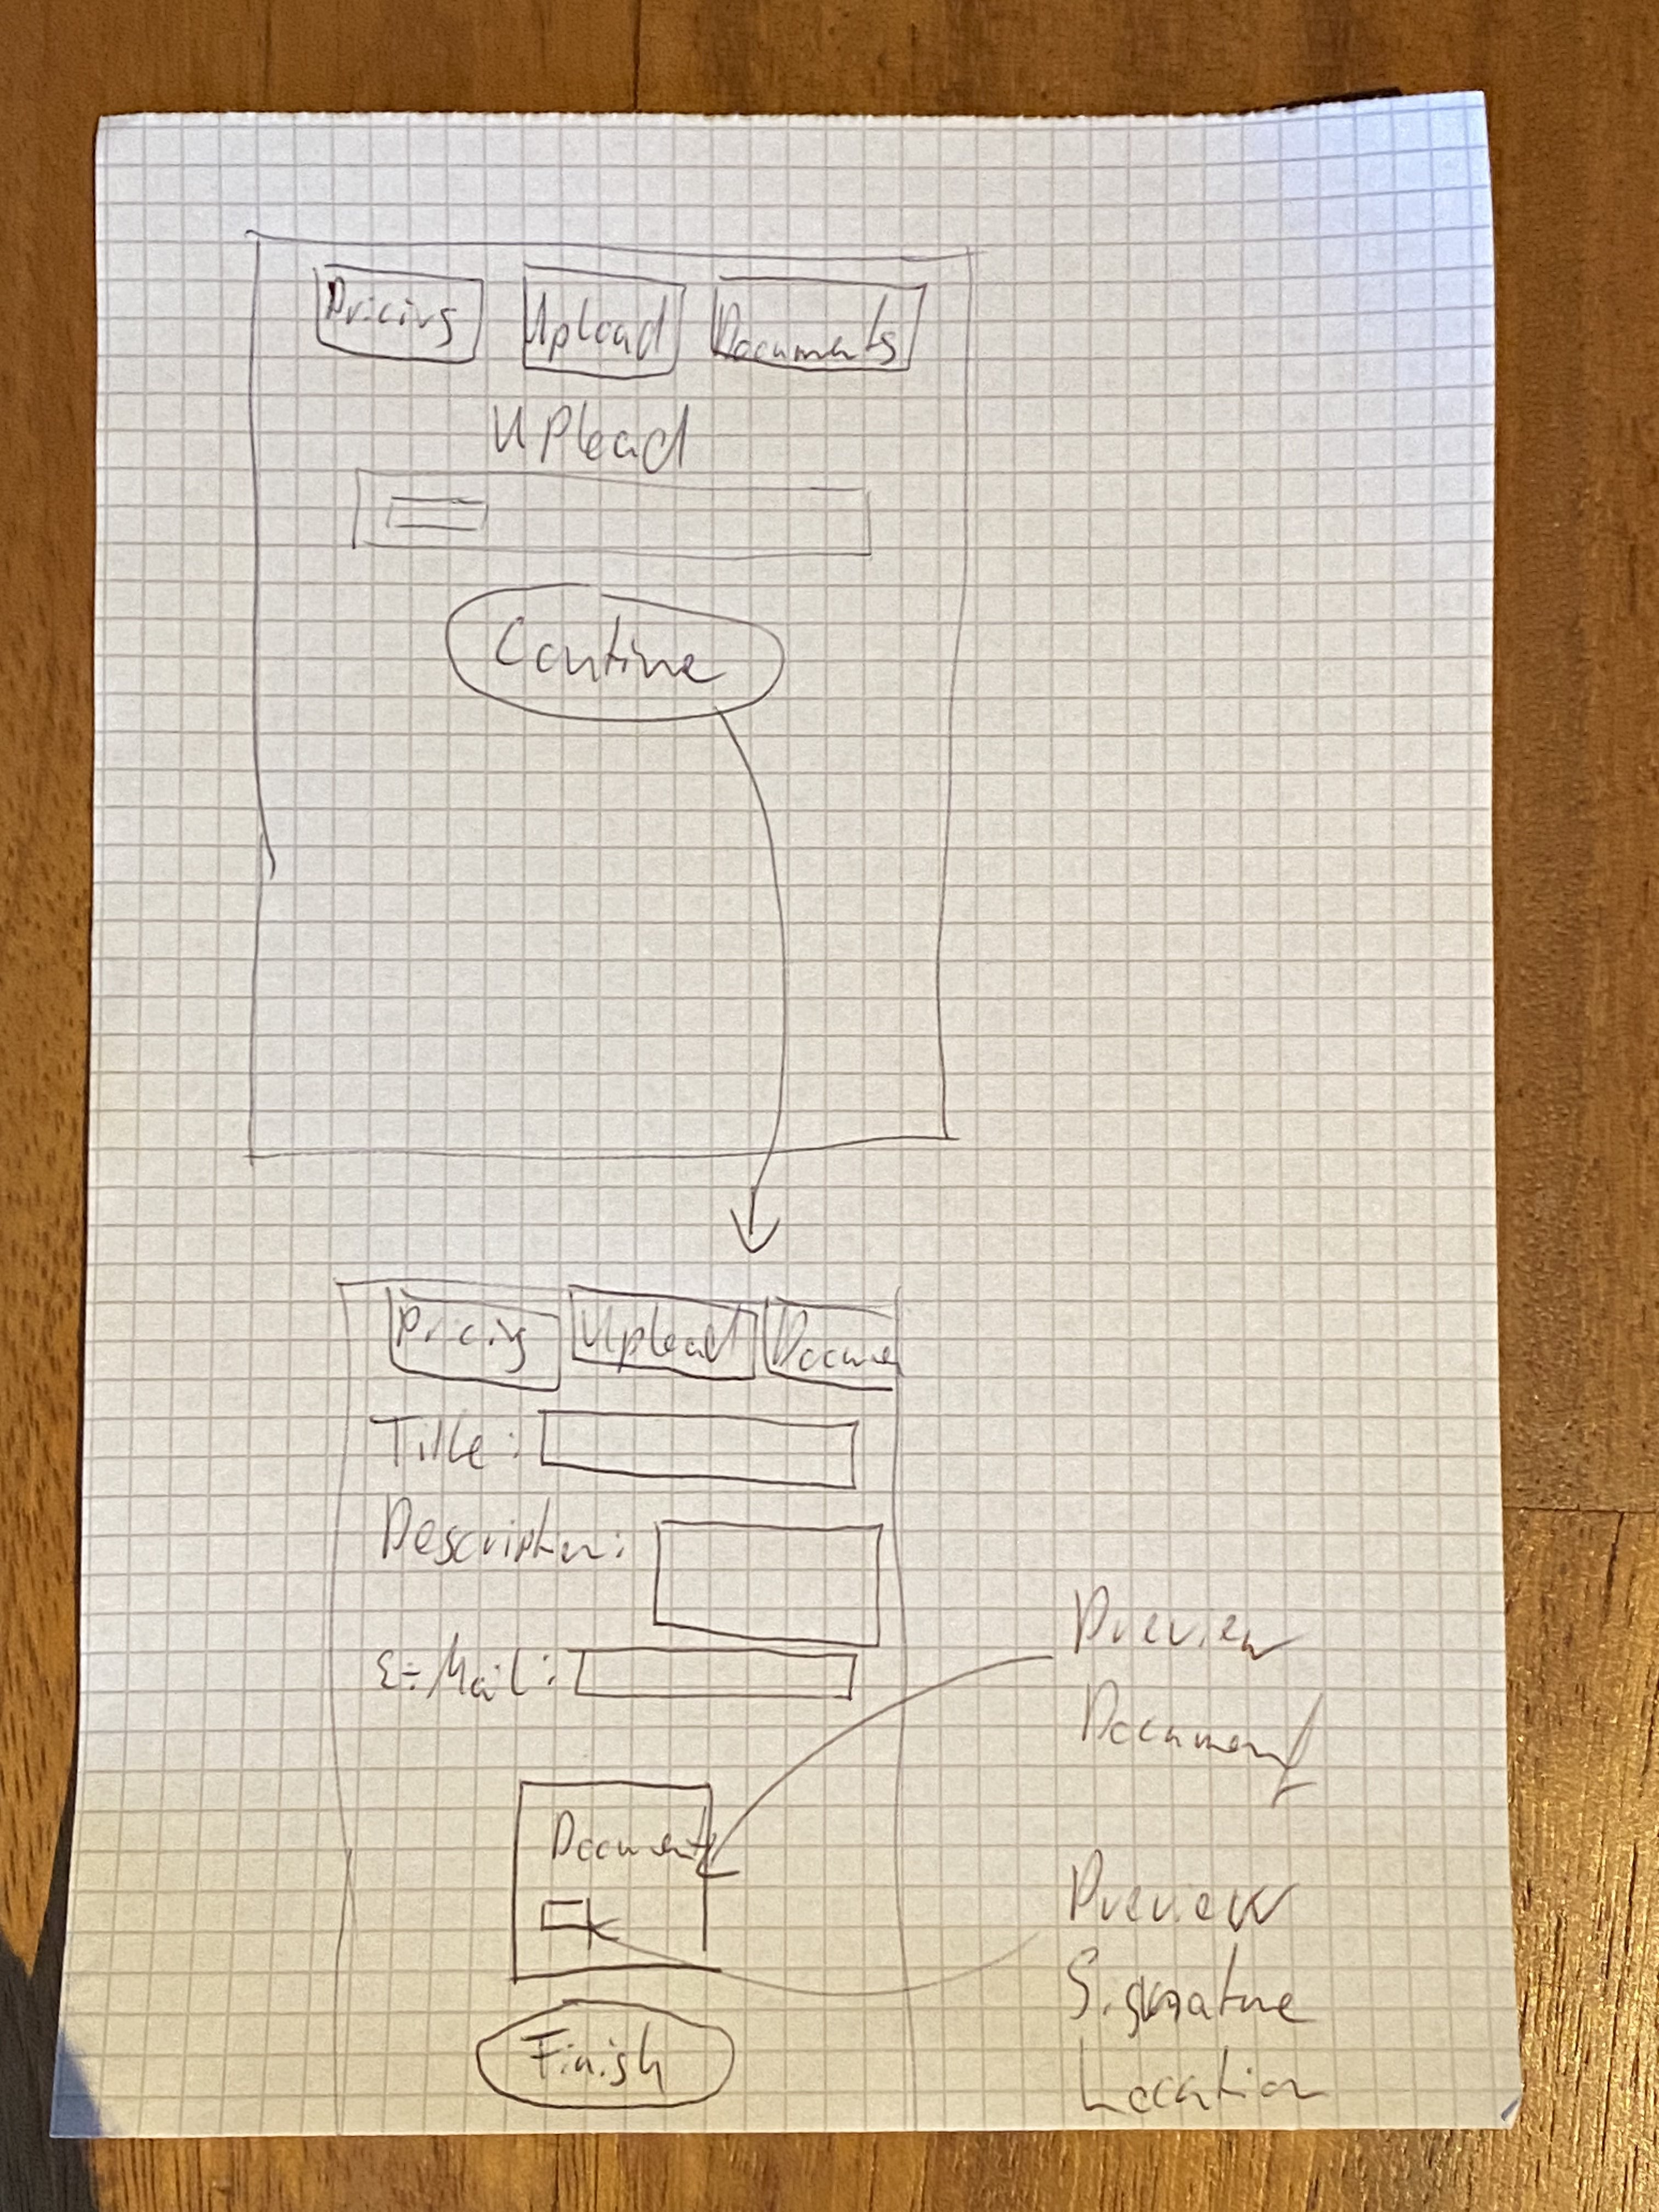 Pricing Upload Documents
Upload
Contine
Pricing Upload Docume
Title:
Description:
E-Mail:
Preview
Document
Document
Preview
Signature
Location
Finish